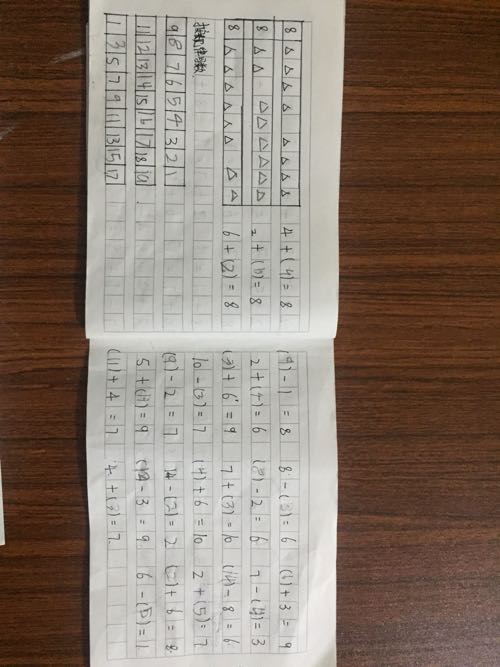 8 △ △ △ △ △ △ △ △ 4 + (4) = 8
8 △ △ △ △ △ △ △ △ 2 + (6) = 8
8 △ △ △ △ △ △ △ △ 6 + (2) = 8
9 8 7 6 5 4 3 2 1
11 12 13 14 15 16 17 18 19
1 3 5 7 9 11 13 15 17
(9) - 1 = 8 8 - (3) = 6 (6) + 3 = 9
2 + (4) = 6 (8) - 2 = 6 7 - (4) = 3
(3) + 6 = 9 7 + (3) = 10 (14) - 8 = 6
10 - (3) = 7 (4) + 6 = 10 2 + (5) = 7
(9) - 2 = 7 4 - (2) = 2 (2) + 6 = 8
5 + (4) = 9 (12) - 3 = 9 6 - (5) = 1
(11) + 4 = 7 4 + (3) = 7